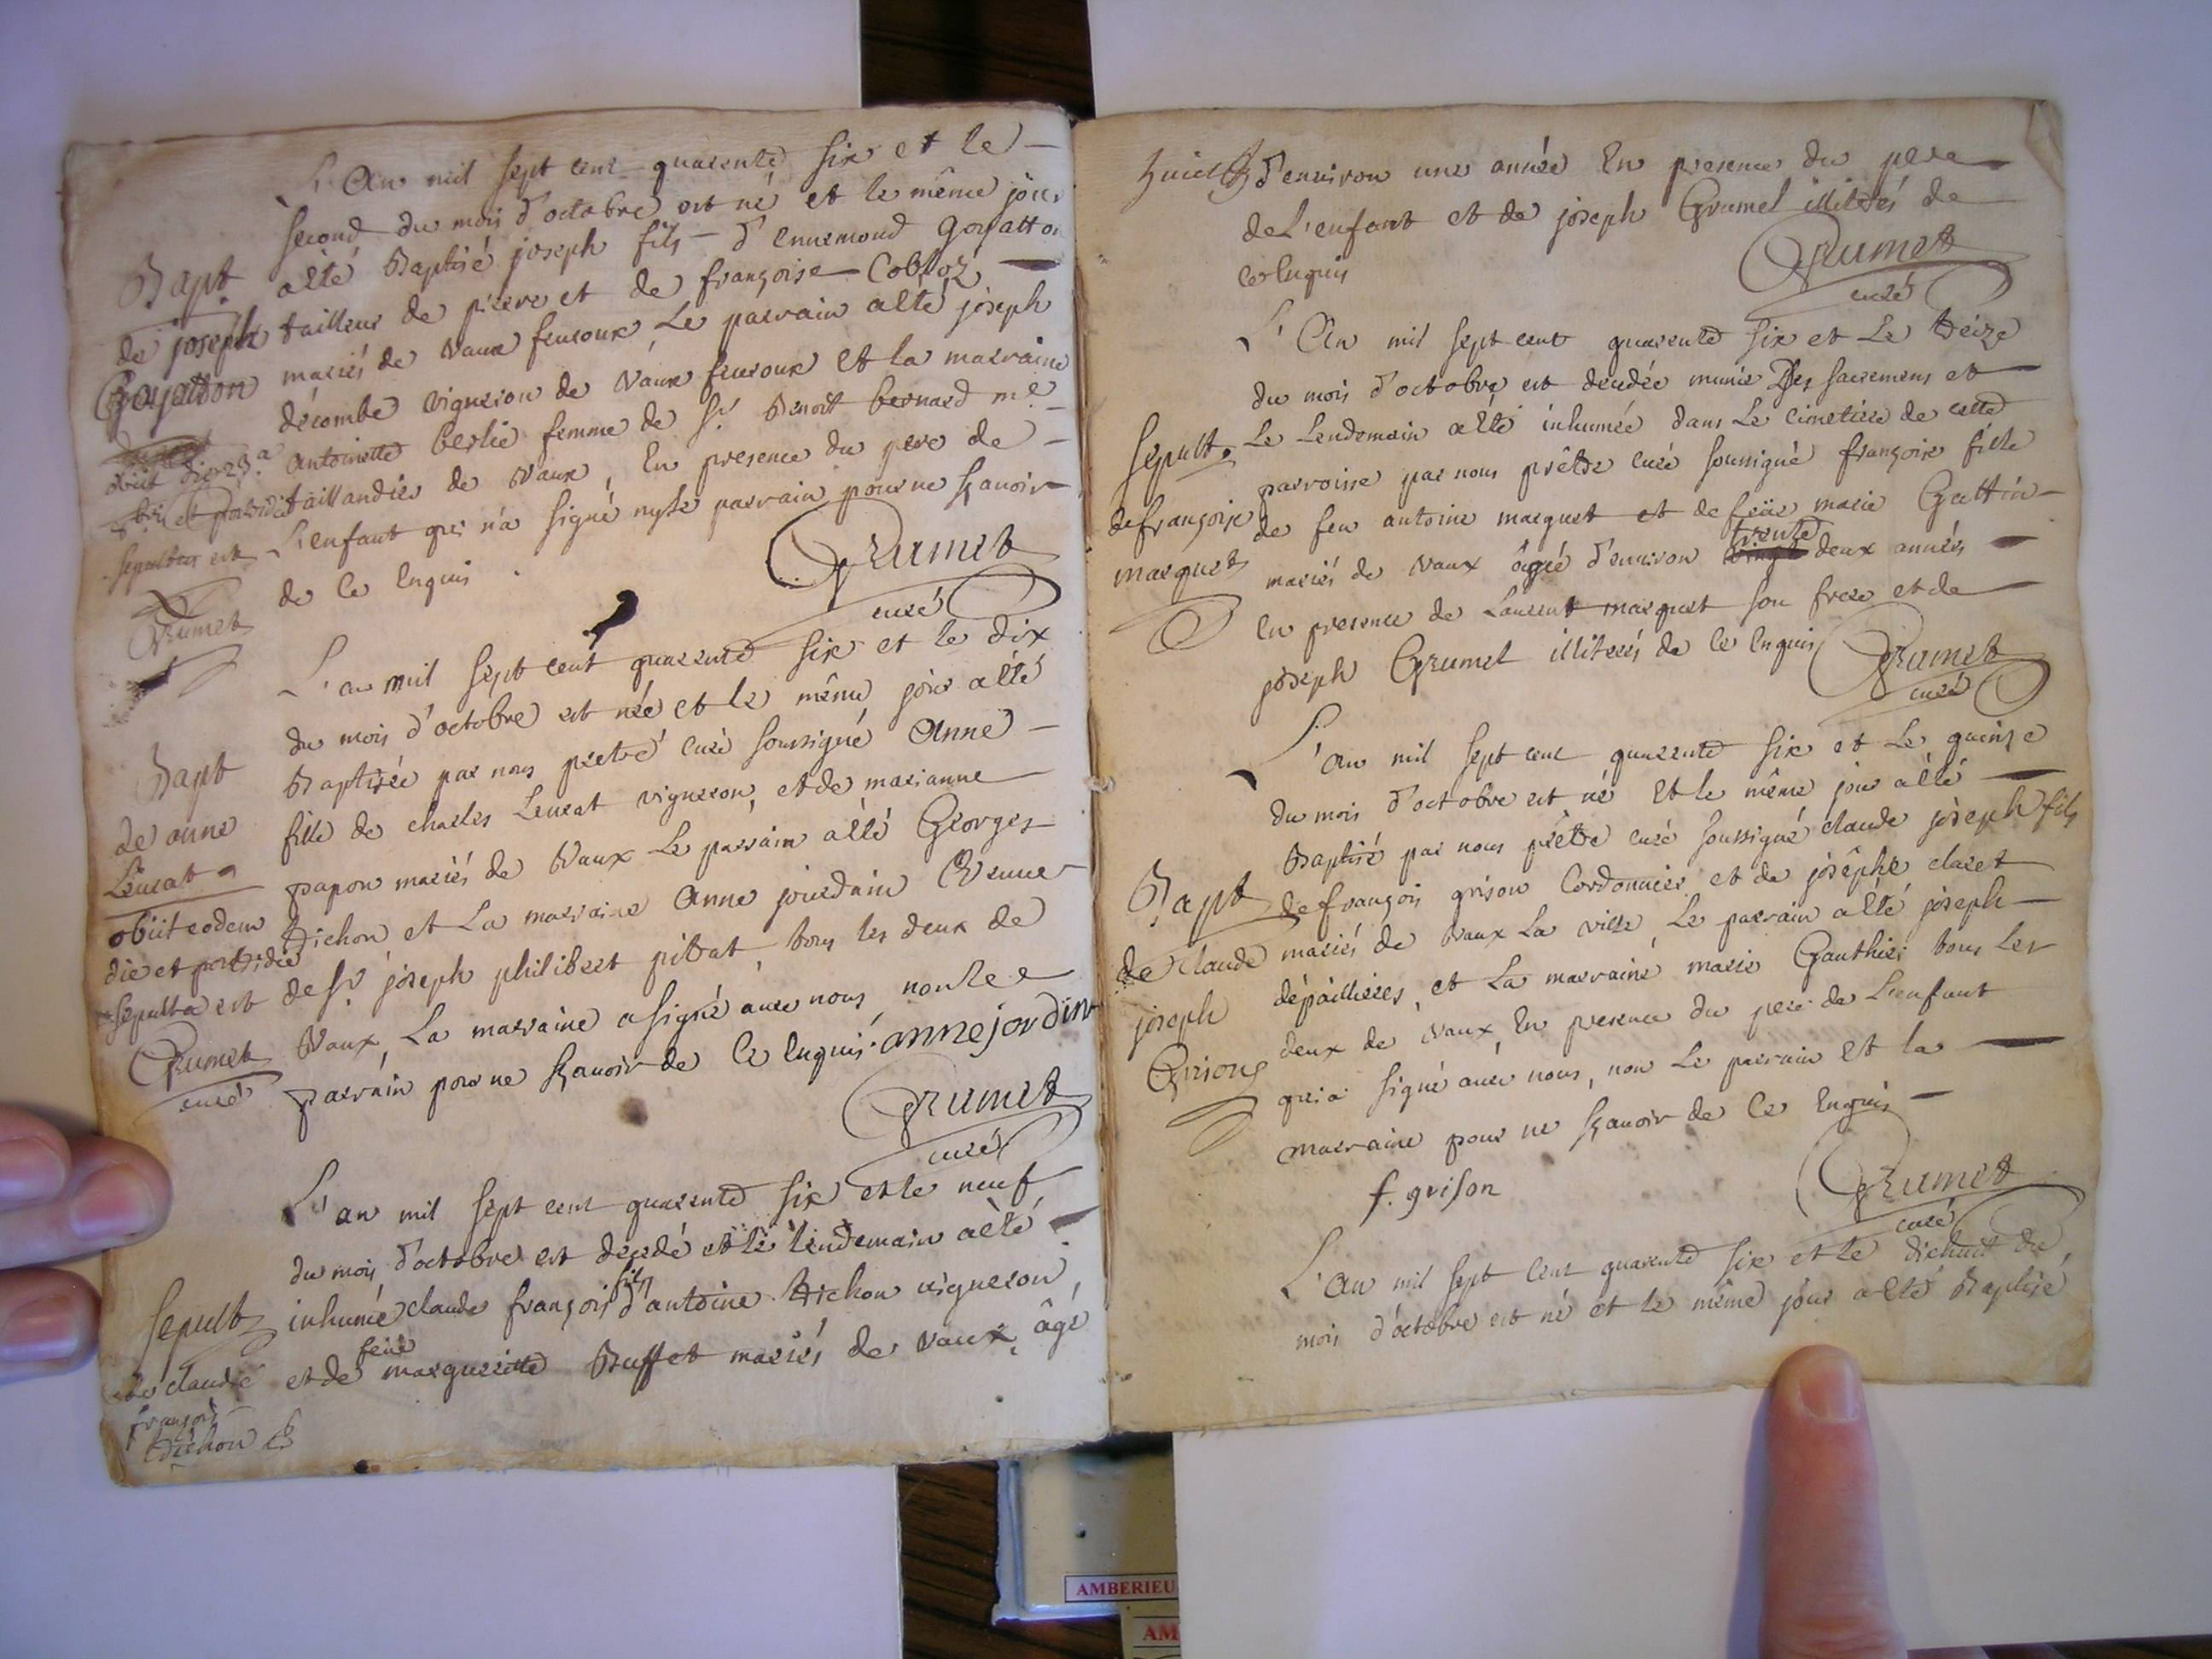 L'An mil sept cent quarente six et le
second du mois d'octobre est né et le même jour
Bapt
aété Baptisé joseph fils d'ennemond goyatton
de joseph
tailleur de pierre et de françoise Cobloz
Goyatton
mariés de Vaux fevroux, Le parrain aété joseph
décombe vigneron de Vaux fevroux et la marraine
antoinette berlie femme de Sr benoit bernard me
obiit die 23a
taillandier de Vaux, En presence du pere de
8bris et postridie
L'enfant qui n'a signé nyle parrain pour ne sçavoir
sepultus est
de ce Enquis.
Grumet
Grumet
curé
L'an mil sept cent quarente six et le dix
du mois d'octobre est née et le même jour aété
Bapt
Baptisée par nous pretre curé soussigné Anne
de anne
fille de charles Leurat vigneron, et de marianne
Leurat
papon mariés de Vaux Le parrain aété Georges
obiit eodem
Tichon et La marraine Anne jourdain Veuve
die et postridie
de Sr joseph philibert pittat, tous les deux de
sepulta est
Vaux, La marraine a signé avec nous, non le
Grumet
curé
parrain pour ne sçavoir de ce Enquis. anne jordin
Grumet
curé
L'an mil sept cent quarente six et le neuf
du mois d'octobre est decedé et le lendemain aété
Sepult
inhumé claude françois fils d'antoine Tichon vigneron,
de claude
et de feüe marguerite Buffet mariés de Vaux, âgé
françois
Tichon
d'environ une année En presence du pere
de L'enfant et de joseph Grumel illiterés de
ce Enquis
Grumet
curé
L'An mil sept cent quarente six et Le treize
du mois d'octobre est decedée munie Des sacremens et
Sepult.
Le Lendemain aété inhumée dans Le cimetiere de cette
parroisse par nous prêtre curé soussigné françoise fille
de françoise
de feu antoine marguet et de feüe marie Gattin
marguet
mariés de Vaux âgée d'environ trente deux années
En presence de Laurent marguet son frere et de
joseph Grumel illiterés de ce Enquis
Grumet
curé
L'an mil sept cent quarente six et Le quinze
du mois d'octobre est né Et le même jour aété
Baptisé par nous prêtre curé soussigné claude joseph fils
Bapt
de françois grison Cordonnier et de josephe claret
de Claude
mariés de Vaux La ville, Le parrain aété joseph
joseph
dépaillieres, et La marraine marie Gauthier tous les
Grison
deux de Vaux, En presence du pere de L'enfant
qui a signé avec nous, non Le parrain Et la
marraine pour ne sçavoir de ce Enquis
f. grison
Grumet
curé
L'An mil sept Cent quarente six et le dichuit du
mois d'octobre est né et le même jour aété Baptisé
AMBERIEU
AM